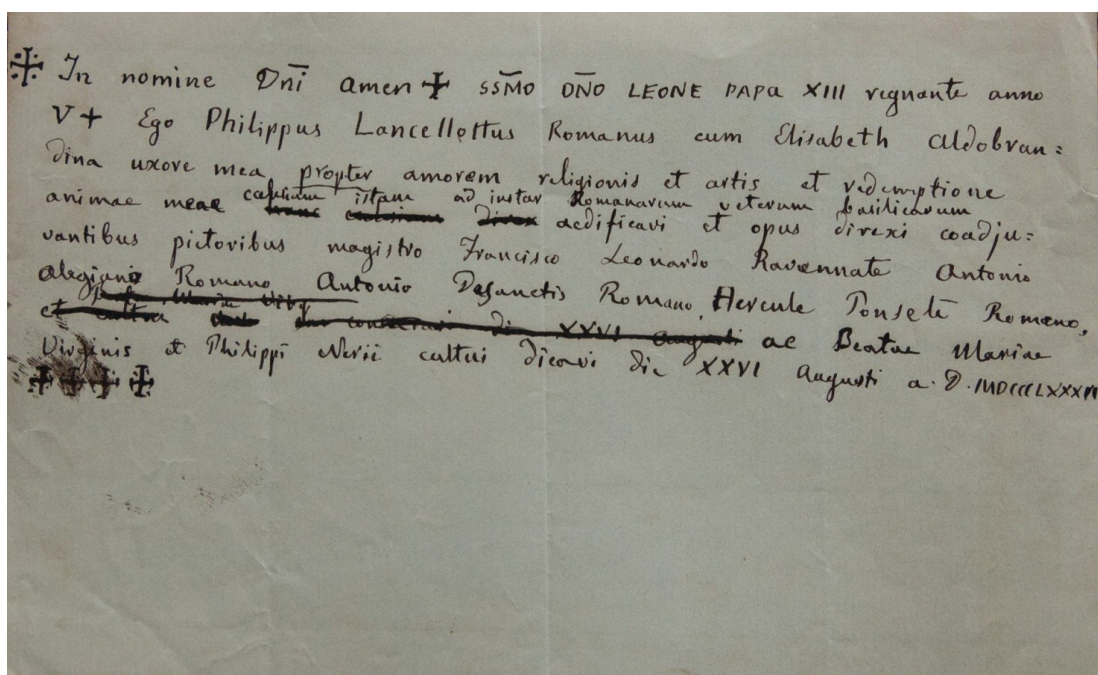 ✠ In nomine Dnī amen ✠ SSM̄O DN̄O LEONE PAPA XIII regnante anno
V + Ego Philippus Lancellottus Romanus cum Elisabeth Aldobran=
dina uxore mea propter amorem religionis et artis et redemptione
casinum istam ad instar Romanarum veterum basilicarum
animae meae aedificavi et opus direxi coadju=
vantibus pictoribus magistro Francisco Leonardo Ravennate Antonio
Romano Antonio Desanctis Romano, Hercule Ponseti Romano,
et XXVI Augusti ac Beatae Mariae
Virginis et Philippi Nerii cultui dicavi die XXVI Augusti a. D. MDCCCLXXXII
✠ ✠ ✠ ✠